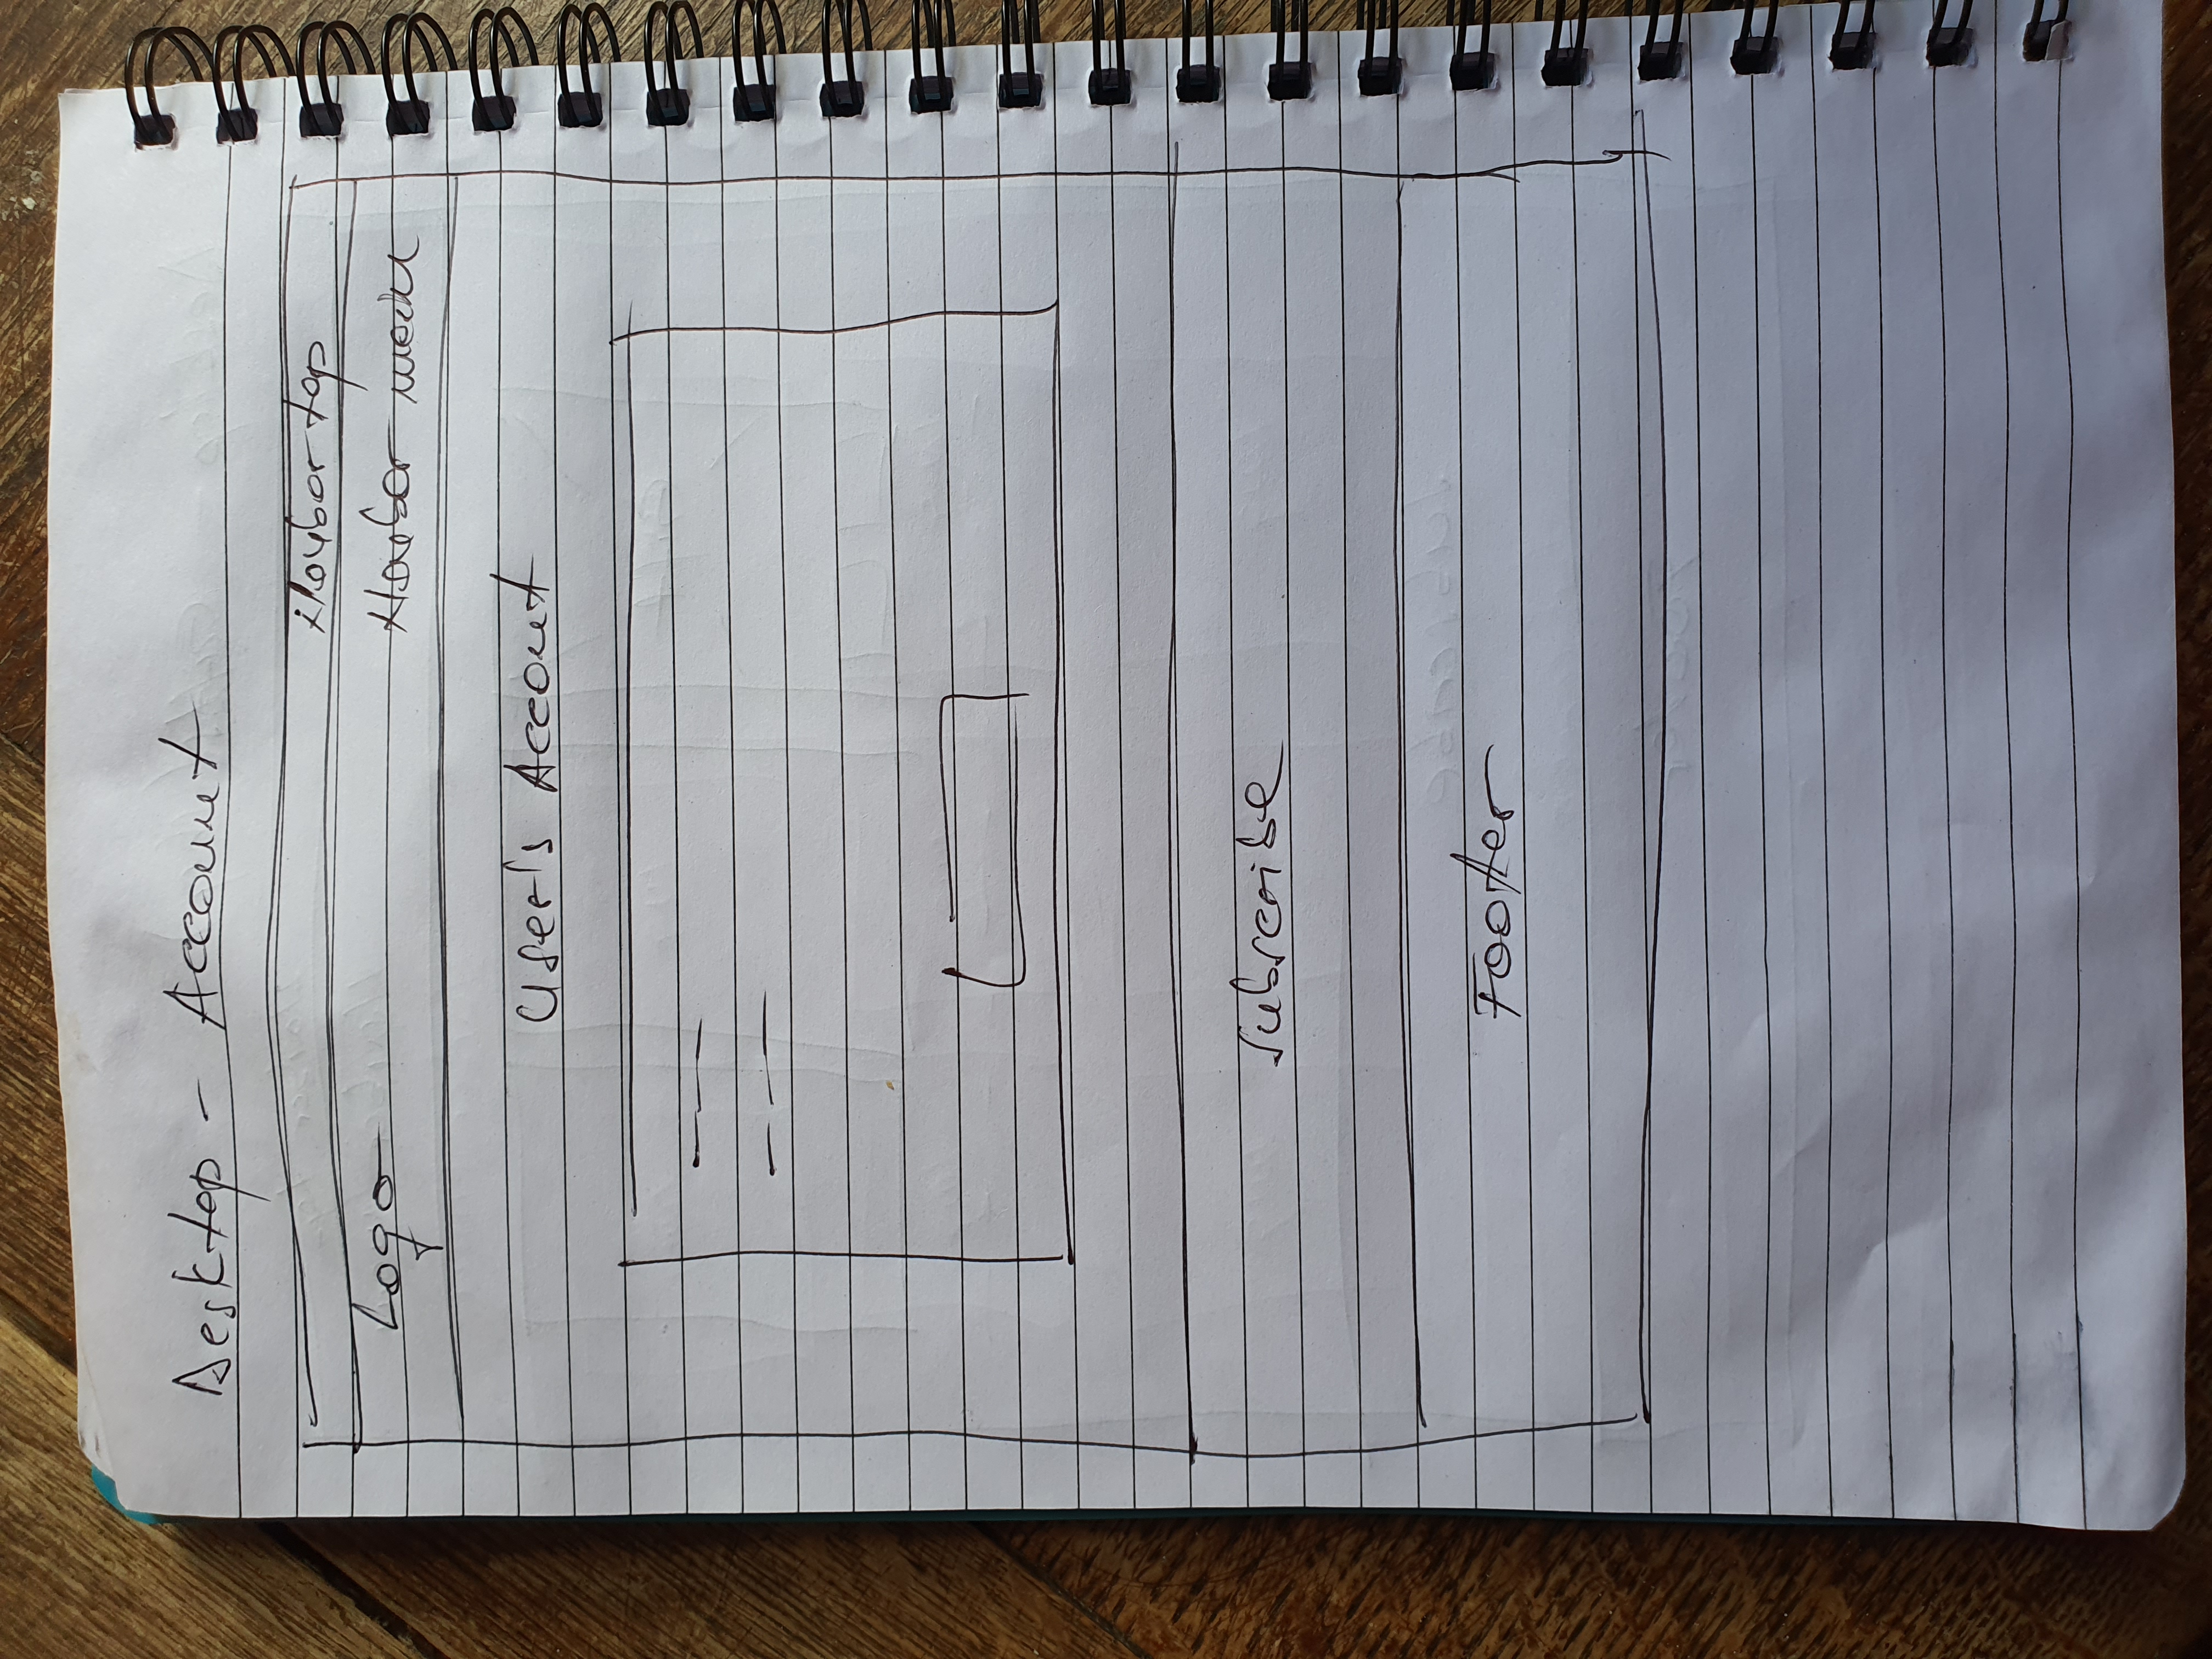 Desktop - Account
Navbar top
Logo
Navbar main
User's Account
Subscribe
Footer